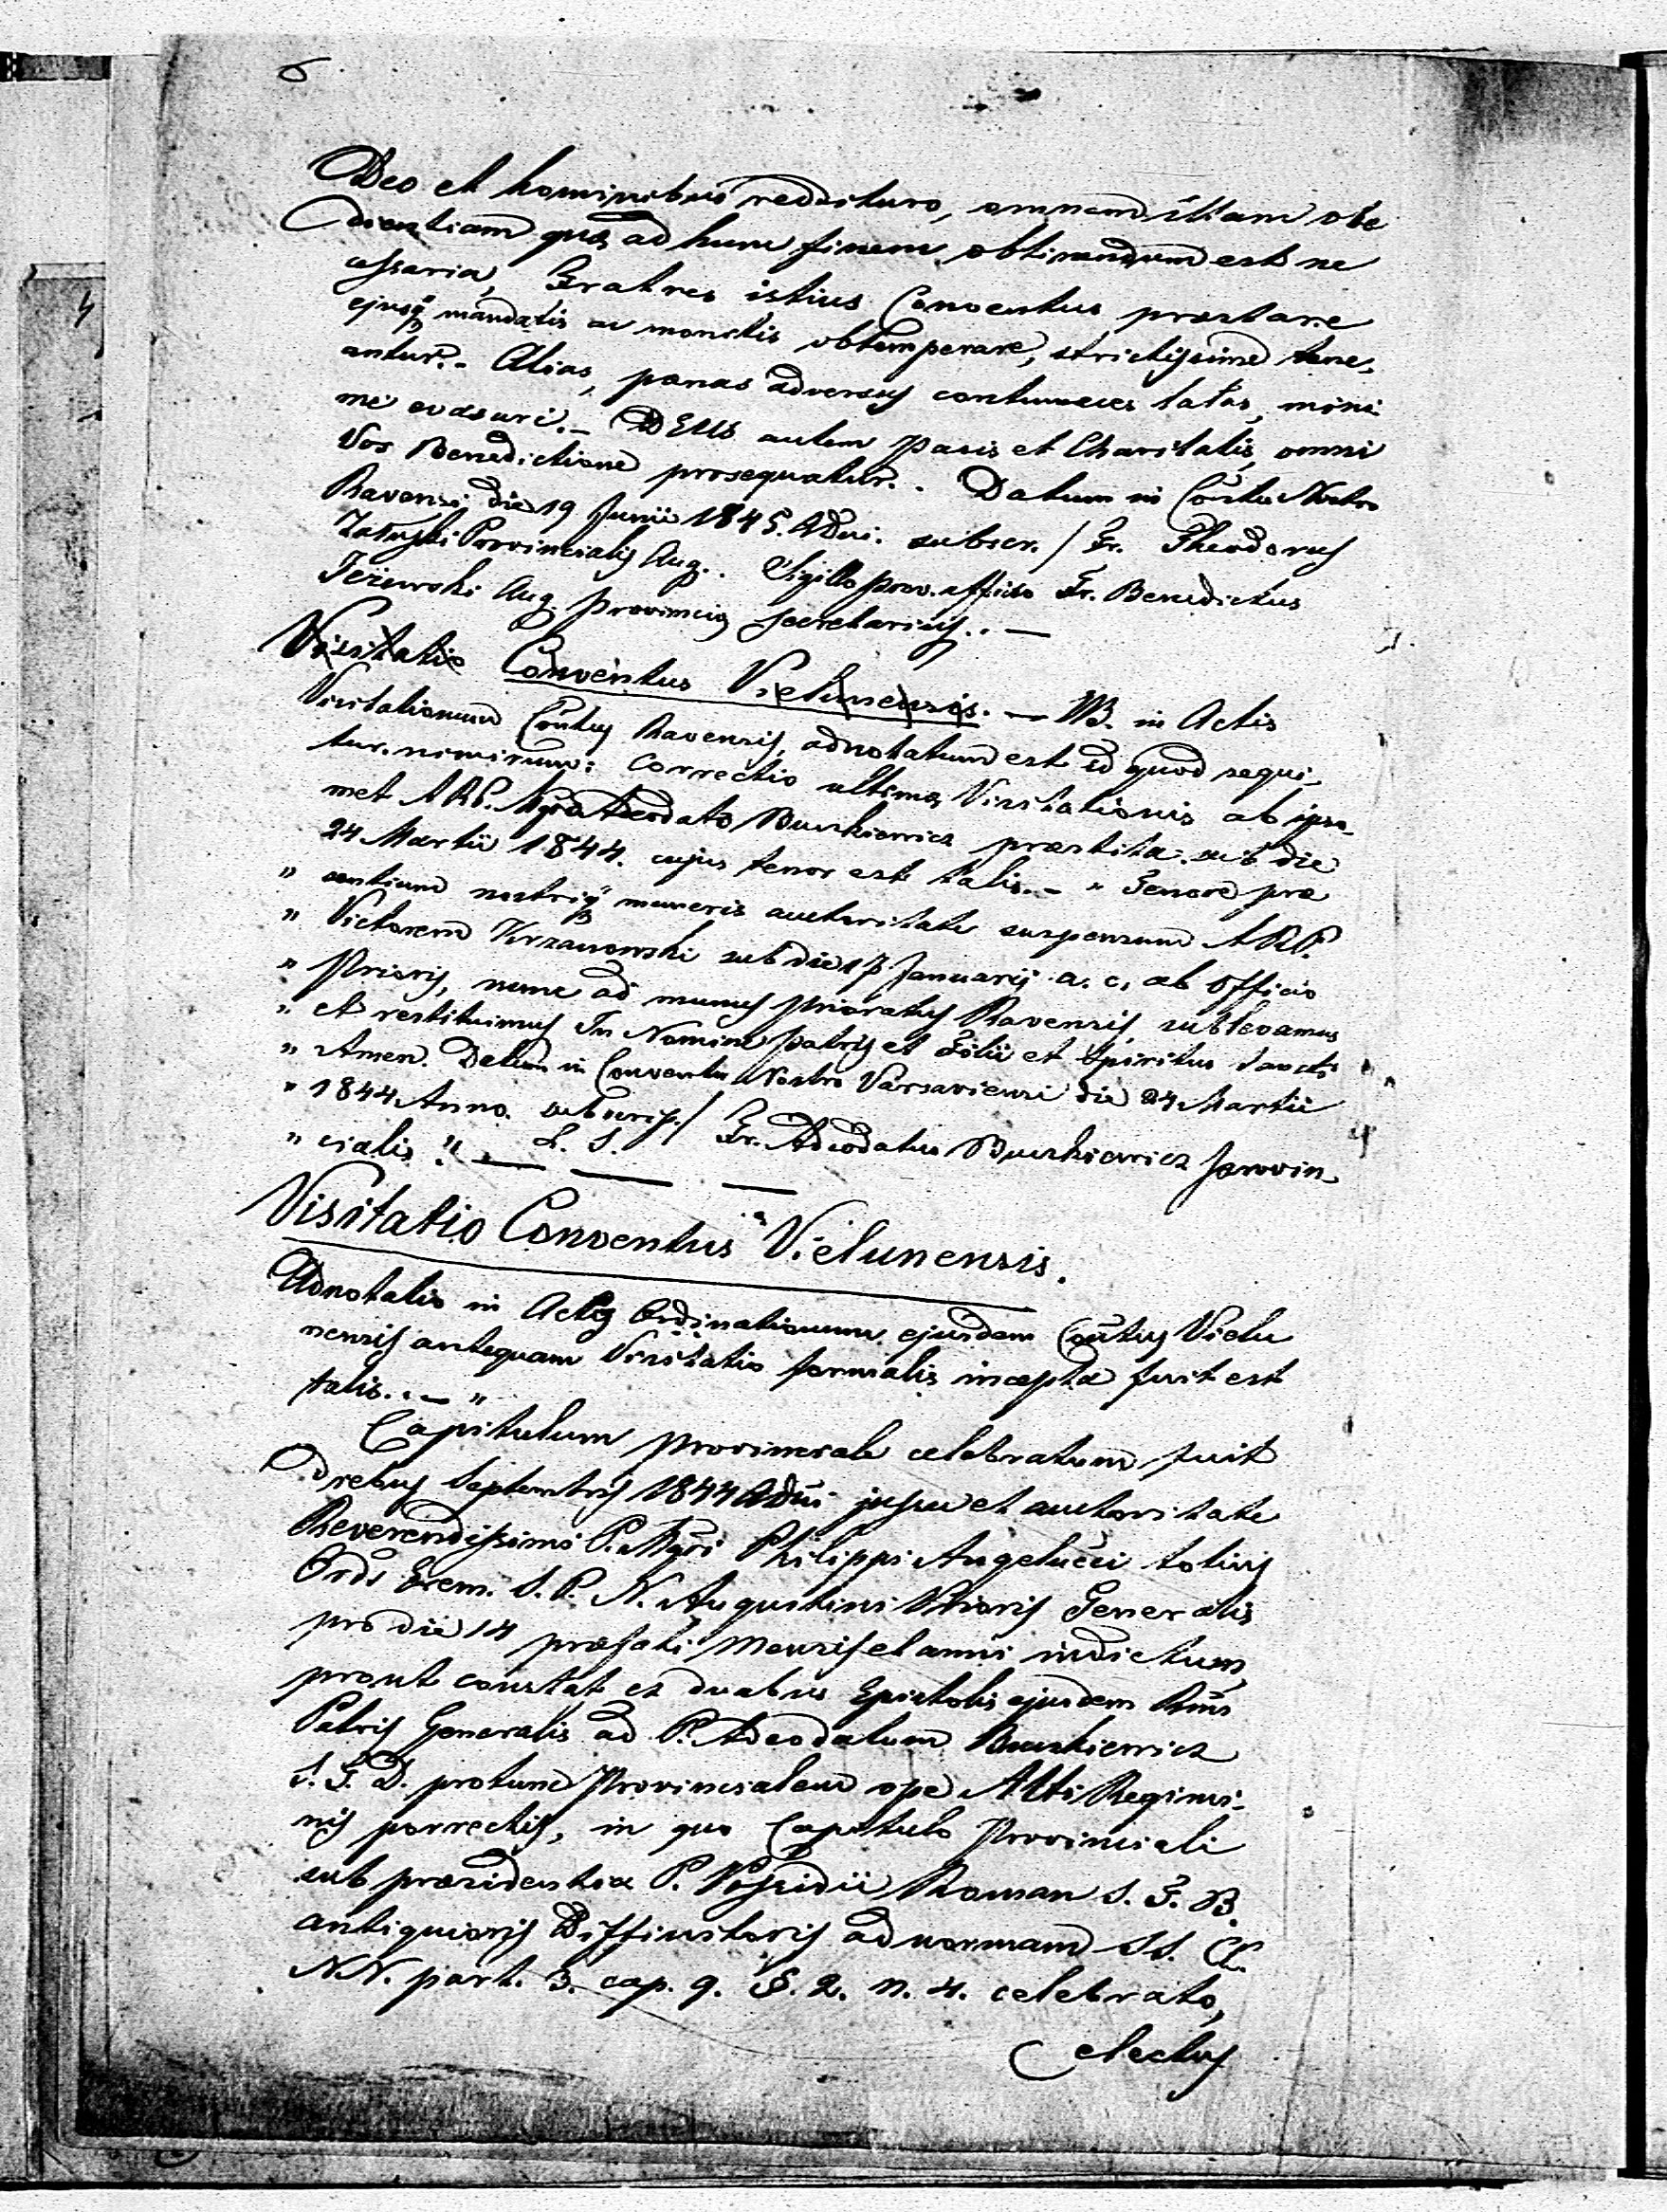 6
Deo et hominibus reddituro, omnem illam obe
dientiam quæ ad hunc finem obtinendum est ne
cessaria, Fratres istius Conventus præstare
ejusq₃ mandatis ac monitis obtemperare, strictissime tene-
antur.- Alias, pænas adversus contumaces latas, mini
me evasuri.- DEUS autem pacis et Charitatis, omni
Vos Benedictione prosequatur.- Datum in Coñtu Nostro
Ravensi die 19 Junii 1845. ADni. subscr. / Fr. Theodorus
Załuski Provincialis Aug.. Sigillo prov. affixo Fr. Benedictus
Jeżewski Aug. Provinciæ Secretarius.. —
Visitatio Conventus Vielunensis. — NB. in Actis
Visitationum Coñtus Ravensis, adnotatum est id quod sequi-
tur. nimirum: Correctio ultimæ Visitationis ab ipso-
met ARP. Mgro Adeodato Burzkiewicz præstita sub die
24 Martii 1844. cujus tenor est talis.- " Tenore præ
" sentium nostriq₃ muneris auctoritate suspensum ARP.
" Victorem Krzanowski sub die 17 Januarij a. c. ab Officio
" Prioris, nunc ad munus Prioratus Ravensis, sublevamus
" et restituimus In Nomine Patris et Filii et Spiritus Sancti
" Amen. Datum in Conventu Nostro Varsaviensi die 24 Martii
" 1844 Anno. subscrip./ Fr. Adeodatus Burzkiewicz Provin-
" cialis." — L. S. — —
Visitatio Conventus Vielunensis.
Adnotatio in Actis Ordinationum ejusdem Coñtus Vielu
nensis antequam Visitatio formalis incæpta fuit est
talis..— "
Capitulum Provinciale celebratum fuit
diebus Septembris 1844 ADni jussu et auctoritate
Reverendissimi P. Mgri Philippi Angelucci totius
Ords Erem. S. P. N. Augustini Prioris Generalis
pro die 14 præfati Mensis et anni indictum,
prout constat ex duabus Epistolis ejusdem Rmi
Patris Generalis ad P. Adeodatum Burzkiewicz
S. T. D. protunc Provincialem ope Alti Regimi-
nis porrectis, in quo Capitulo Provinciali
sub præsidentia P. Possidii Roman S. T. B.
antiquioris Diffinitoris ad normam SS. CC.
NN. part. 3. cap. 9. §. 2. n. 4. celebrato,
electus